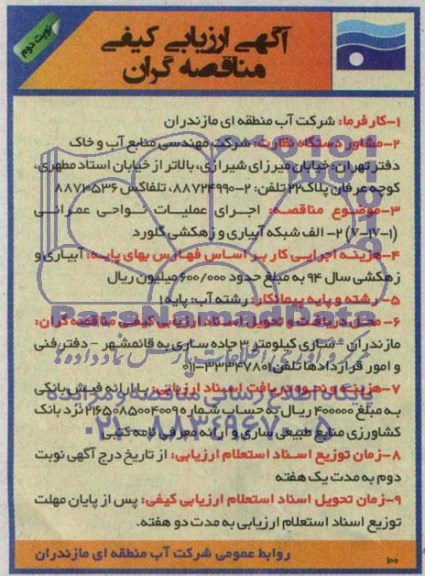 نوبت دوم
آگهی ارزیابی کیفی
مناقصه گران
۱-کارفرما: شرکت آب منطقه ای مازندران
۲-مشاور دستگاه نظارت: شرکت مهندسی منابع آب و خاک
دفتر تهران، خیابان میرزای شیرازی، بالاتر از خیابان استاد مطهری،
کوچه عرفان پلاک۲۲ تلفن: ۲-۸۸۷۲۴۹۹۰، تلفاکس ۸۸۷۲۰۵۳۶
۳-موضوع مناقصه: اجرای عملیات نواحی عمرانی
(۱-۱۷-۷) ۲- الف شبکه آبیاری و زهکشی گلورد
۴-هزینه اجرایی کار بر اساس فهارس بهای پایه: آبیاری و
زهکشی سال ۹۴ به مبلغ حدود ۶۰۰/۰۰۰ میلیون ریال
۵- رشته و پایه پیمانکار: رشته آب: پایه ۱
۶- محل دریافت و تحویل اسناد ارزیابی کیفی مناقصه گران:
مازندران - ساری کیلومتر ۳ جاده ساری به قائمشهر - دفتر فنی
و امور قراردادها تلفن: ۰۱۱-۳۳۳۴۷۸۰۱
۷-هزینه و نحوه دریافت اسناد ارزیابی: با ارائه فیش بانکی
به مبلغ ۴۰۰۰۰۰ ریال به حساب شماره ۲۱۶۵۰۸۵۰۰۴۰۰۹۵ نزد بانک
کشاورزی منابع طبیعی ساری و ارائه معرفی نامه کتبی
۸-زمان توزیع اسناد استعلام ارزیابی: از تاریخ درج آگهی نوبت
دوم به مدت یک هفته
۹-زمان تحویل اسناد استعلام ارزیابی کیفی: پس از پایان مهلت
توزیع اسناد استعلام ارزیابی به مدت دو هفته.
روابط عمومی شرکت آب منطقه ای مازندران
ParsNamadData
مرکز فرآوری اطلاعات پارس نماد داده ها
پایگاه اطلاع رسانی مناقصه و مزایده
۰۲۱-۸۸۳۴۹۶۷۰-۵